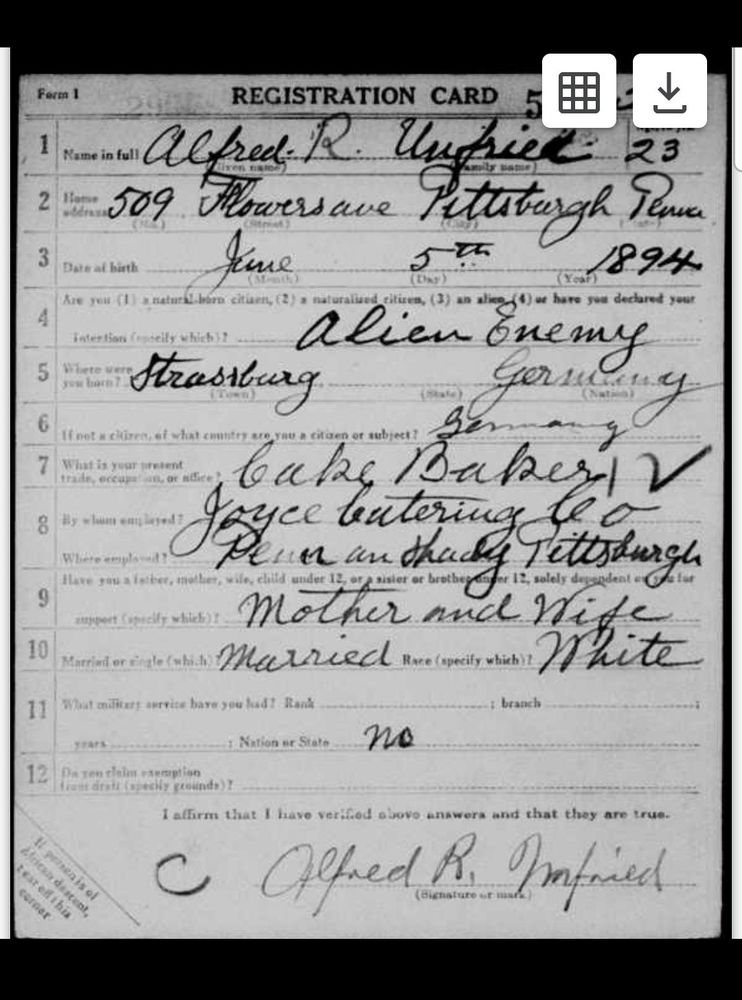 Form 1 REGISTRATION CARD 5
1 Name in full Alfred. R. Unfried 23
(Given name) (Family name)
2 Home address 509 Flowers ave Pittsburgh Penna
(No.) (Street) (City) (State)
3 Date of birth June 5th 1894
(Month) (Day) (Year)
Are you (1) a natural-born citizen, (2) a naturalized citizen, (3) an alien, (4) or have you declared your
4 intention (specify which)? Alien Enemy
5 Where were you born? Strassburg Germany
(Town) (State) (Nation)
6 If not a citizen, of what country are you a citizen or subject? Germany
7 What is your present trade, occupation, or office? Cake Baker 12
8 By whom employed? Joyce Catering Co
Where employed? Penn an Shady Pittsburgh
Have you a father, mother, wife, child under 12, or a sister or brother under 12, solely dependent on you for
9 support (specify which)? Mother and Wife
10 Married or single (which)? Married Race (specify which)? White
11 What military service have you had? Rank ; branch ;
years ; Nation or State no
12 Do you claim exemption
from draft (specify grounds)?
I affirm that I have verified above answers and that they are true.
C Alfred R. Unfried
(Signature or mark)
If person is of
African descent,
tear off this
corner